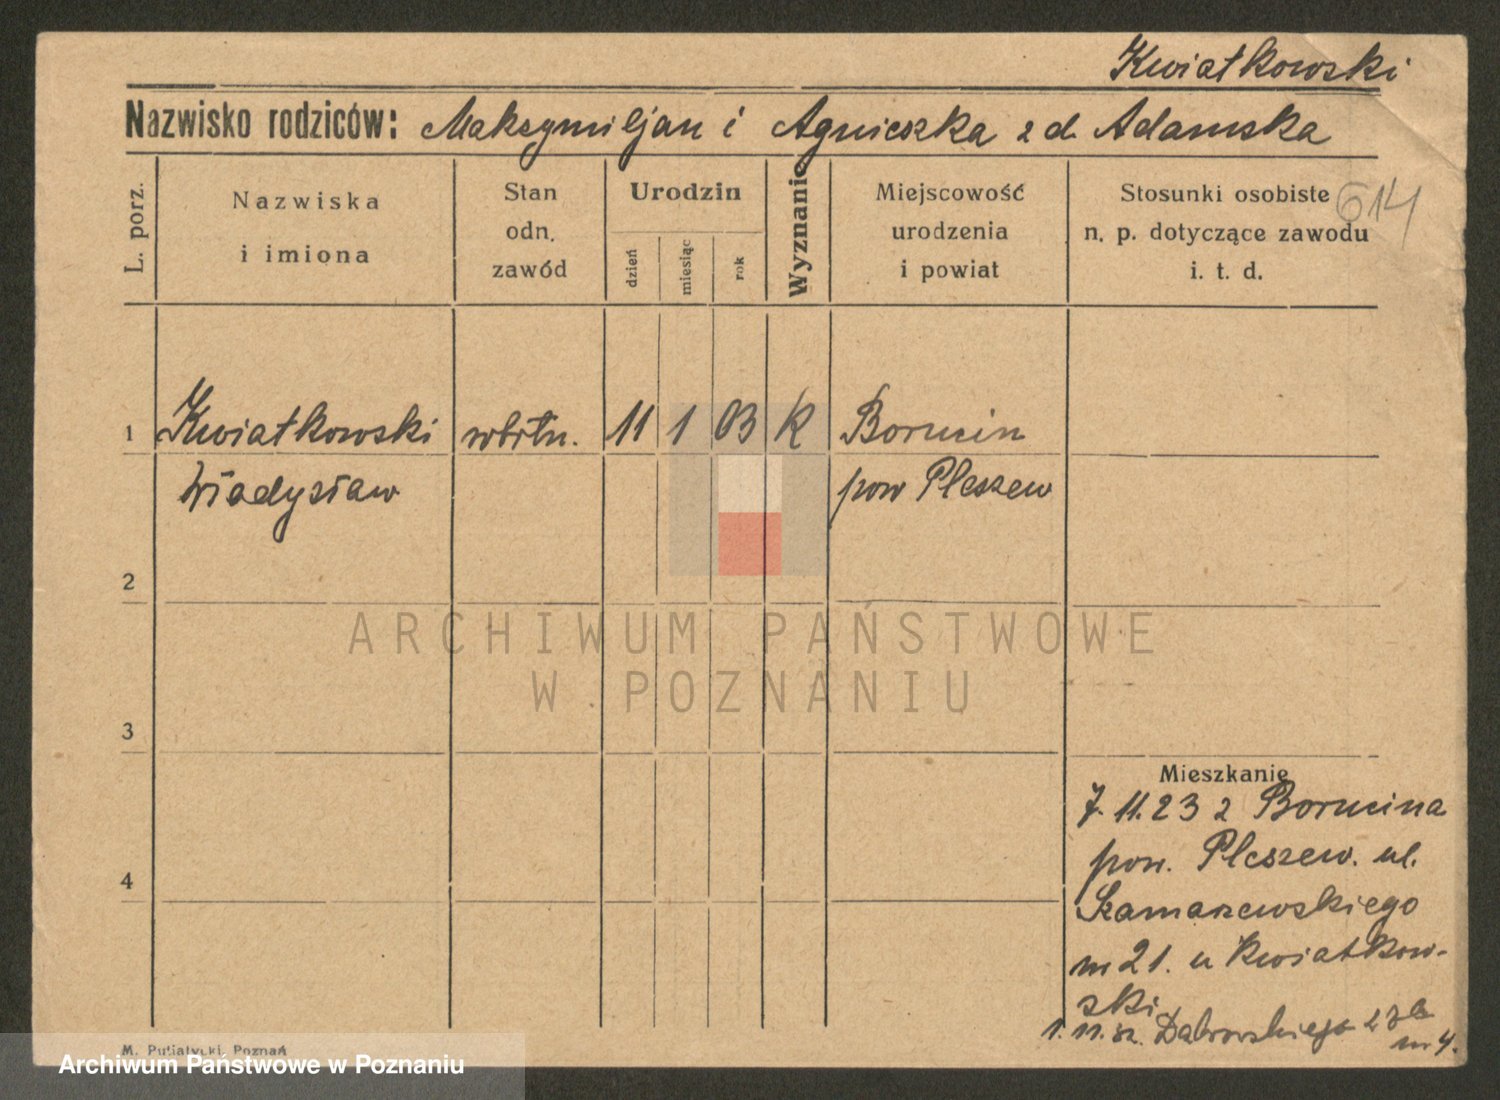 Kwiatkowski
Nazwisko rodziców: Maksymiljan i Agnieszka z d. Adamska
L. porz.
Nazwiska
i imiona
Stan
odn.
zawód
Urodzin
dzień
miesiąc
rok
Wyznanie
Miejscowość
urodzenia
i powiat
Stosunki osobiste
n. p. dotyczące zawodu
i. t. d.
614
1 Kwiatkowski 11 1 03 K Borucin
Władysław pow Pleszew
2
3
4
Mieszkanie
7.11.23 z Borucina
pow. Pleszew. ul.
Szamarzewskiego
m 21. u Kwiatkow-
ski
1. 11. Dąbrowskiego
m 4.
M. Putiatycki, Poznań
ARCHIWUM PAŃSTWOWE
W POZNANIU
Archiwum Państwowe w Poznaniu